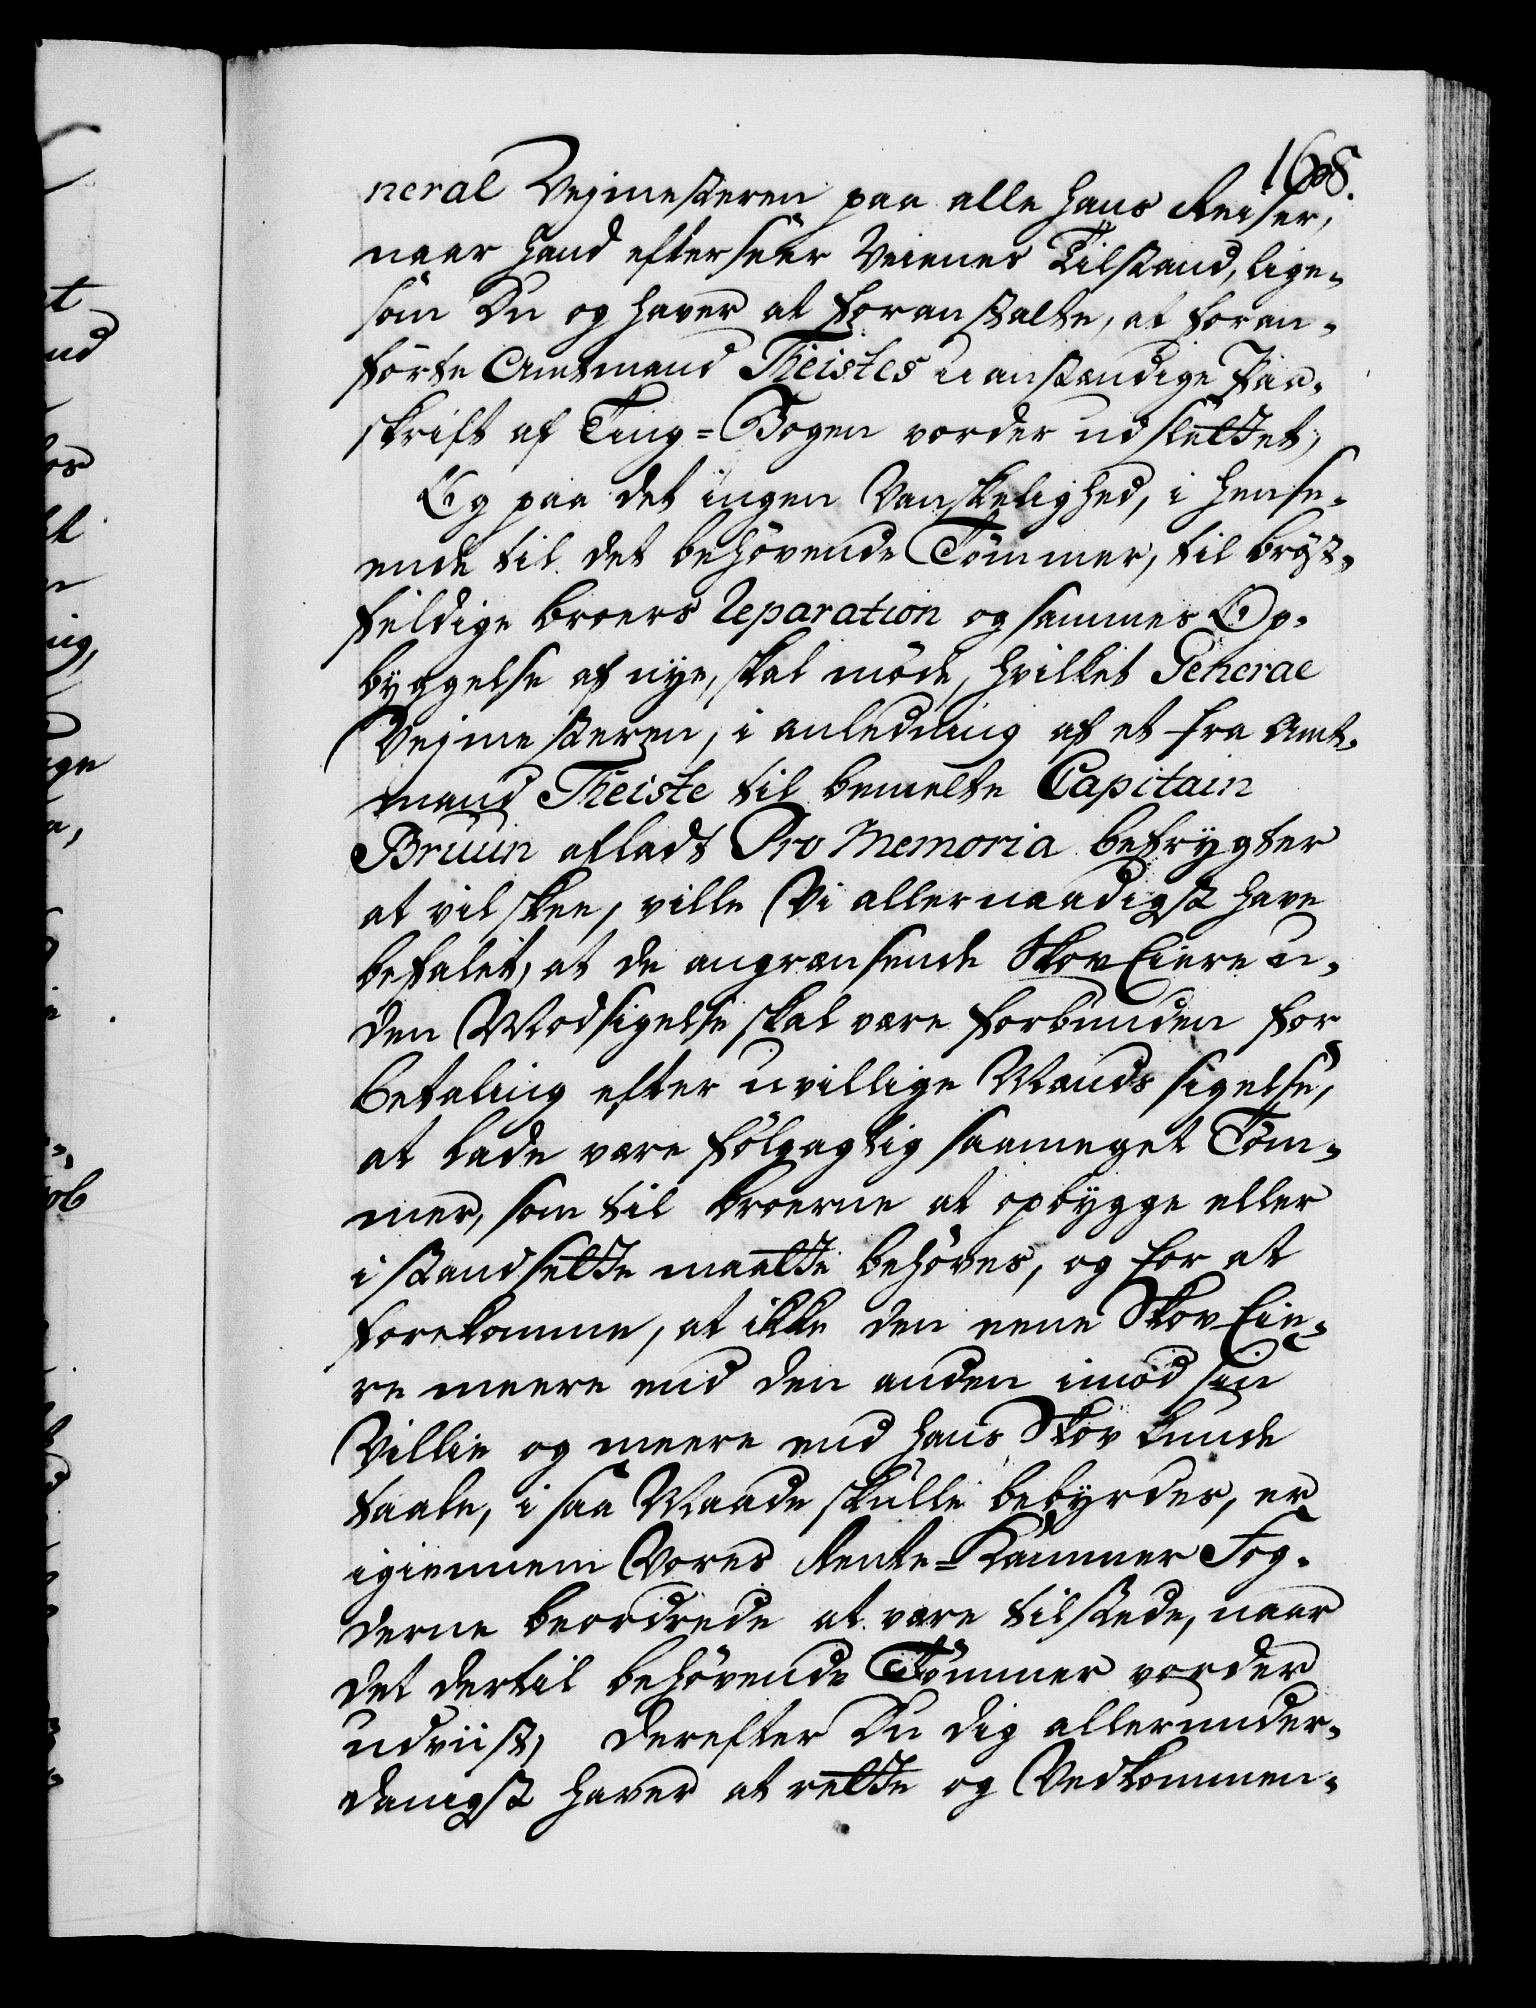 168.
neral Vejmesteren paa alle hans Reiser,
naar hand efterseer Veienes Tilstand, lige-
som Du og haver at foranstalte, at foran-
förte Amtmand Theistes uanstændige Paa-
skrift af Ting=Bogen vorder udslettet,
Og paa det ingen Vanskelighed, i hense-
ende til det behövende Tömmer, til bröst-
fældige broers Reparation og sammes Op-
byggelse af nye, skal möde, hvilket General
Vejmesteren, i anledning af et fra Amt-
mand Theiste til bemelte Capitain
Bruun afladt Pro Memoria befrygter
at vil skee, ville Vi allernaadigst have
befalet, at de angrænsende Skov Eiere u-
den Modsigelse skal være forbunden for
betaling efter uvillige Mænds sigelse,
at lade være fölgagtig saameget Töm-
mer, som til broerne at opbygge eller
i standsette maatte behöves, og for at
forekomme, at ikke den eene Skov Eie-
re meere end den anden imod sin
Villie og meere end hans Skov kunde
taale, i saa Maade skulle bebyrdes, er
igiennem Vores Rente=Kammer Fog-
derne beordrede at være tilstede, naar
det dertil behövende Tömmer vorder
udviist, derefter Du dig allerunder-
danigst haver at rette og Vedkommen-